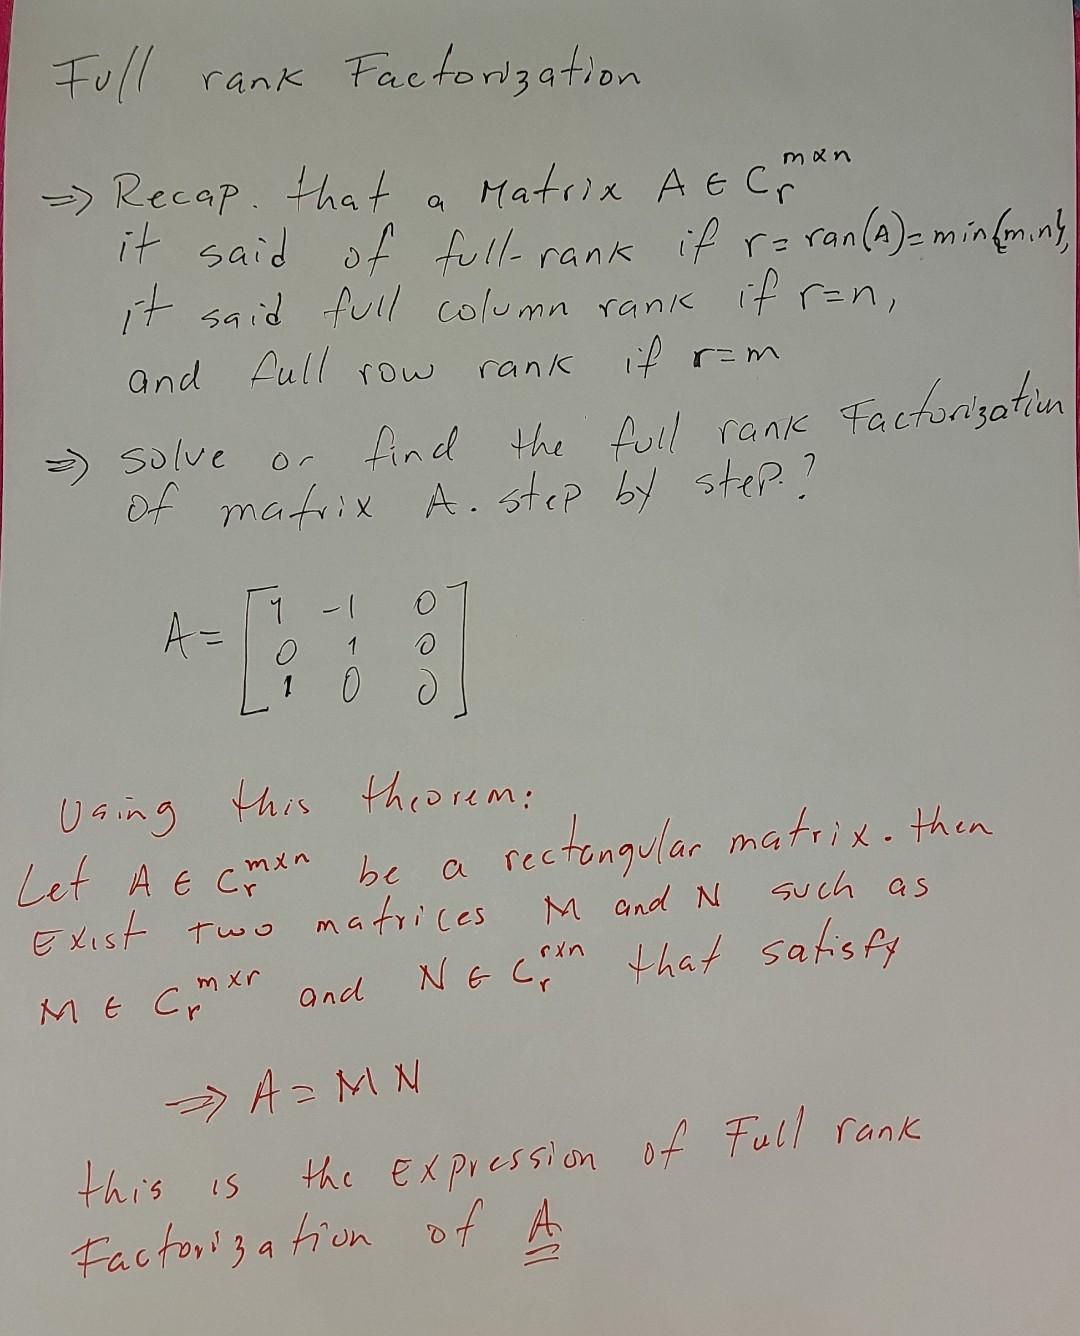 Full rank Factorization
⇒ Recap. that a Matrix A ∈ C_r^{m×n}
it said of full-rank if r = ran(A) = min{m,n},
it said full column rank if r=n,
and full row rank if r=m
⇒ solve or find the full rank Factorization
of matrix A. step by step.?
A = [ 1 -1 0
0 1 0
1 0 0 ]
Using this theorem:
Let A ∈ C_r^{m×n} be a rectangular matrix. then
Exist two matrices M and N such as
M ∈ C_r^{m×r} and N ∈ C_r^{r×n} that satisfy
⇒ A = M N
this is the Expression of Full rank
Factorization of A